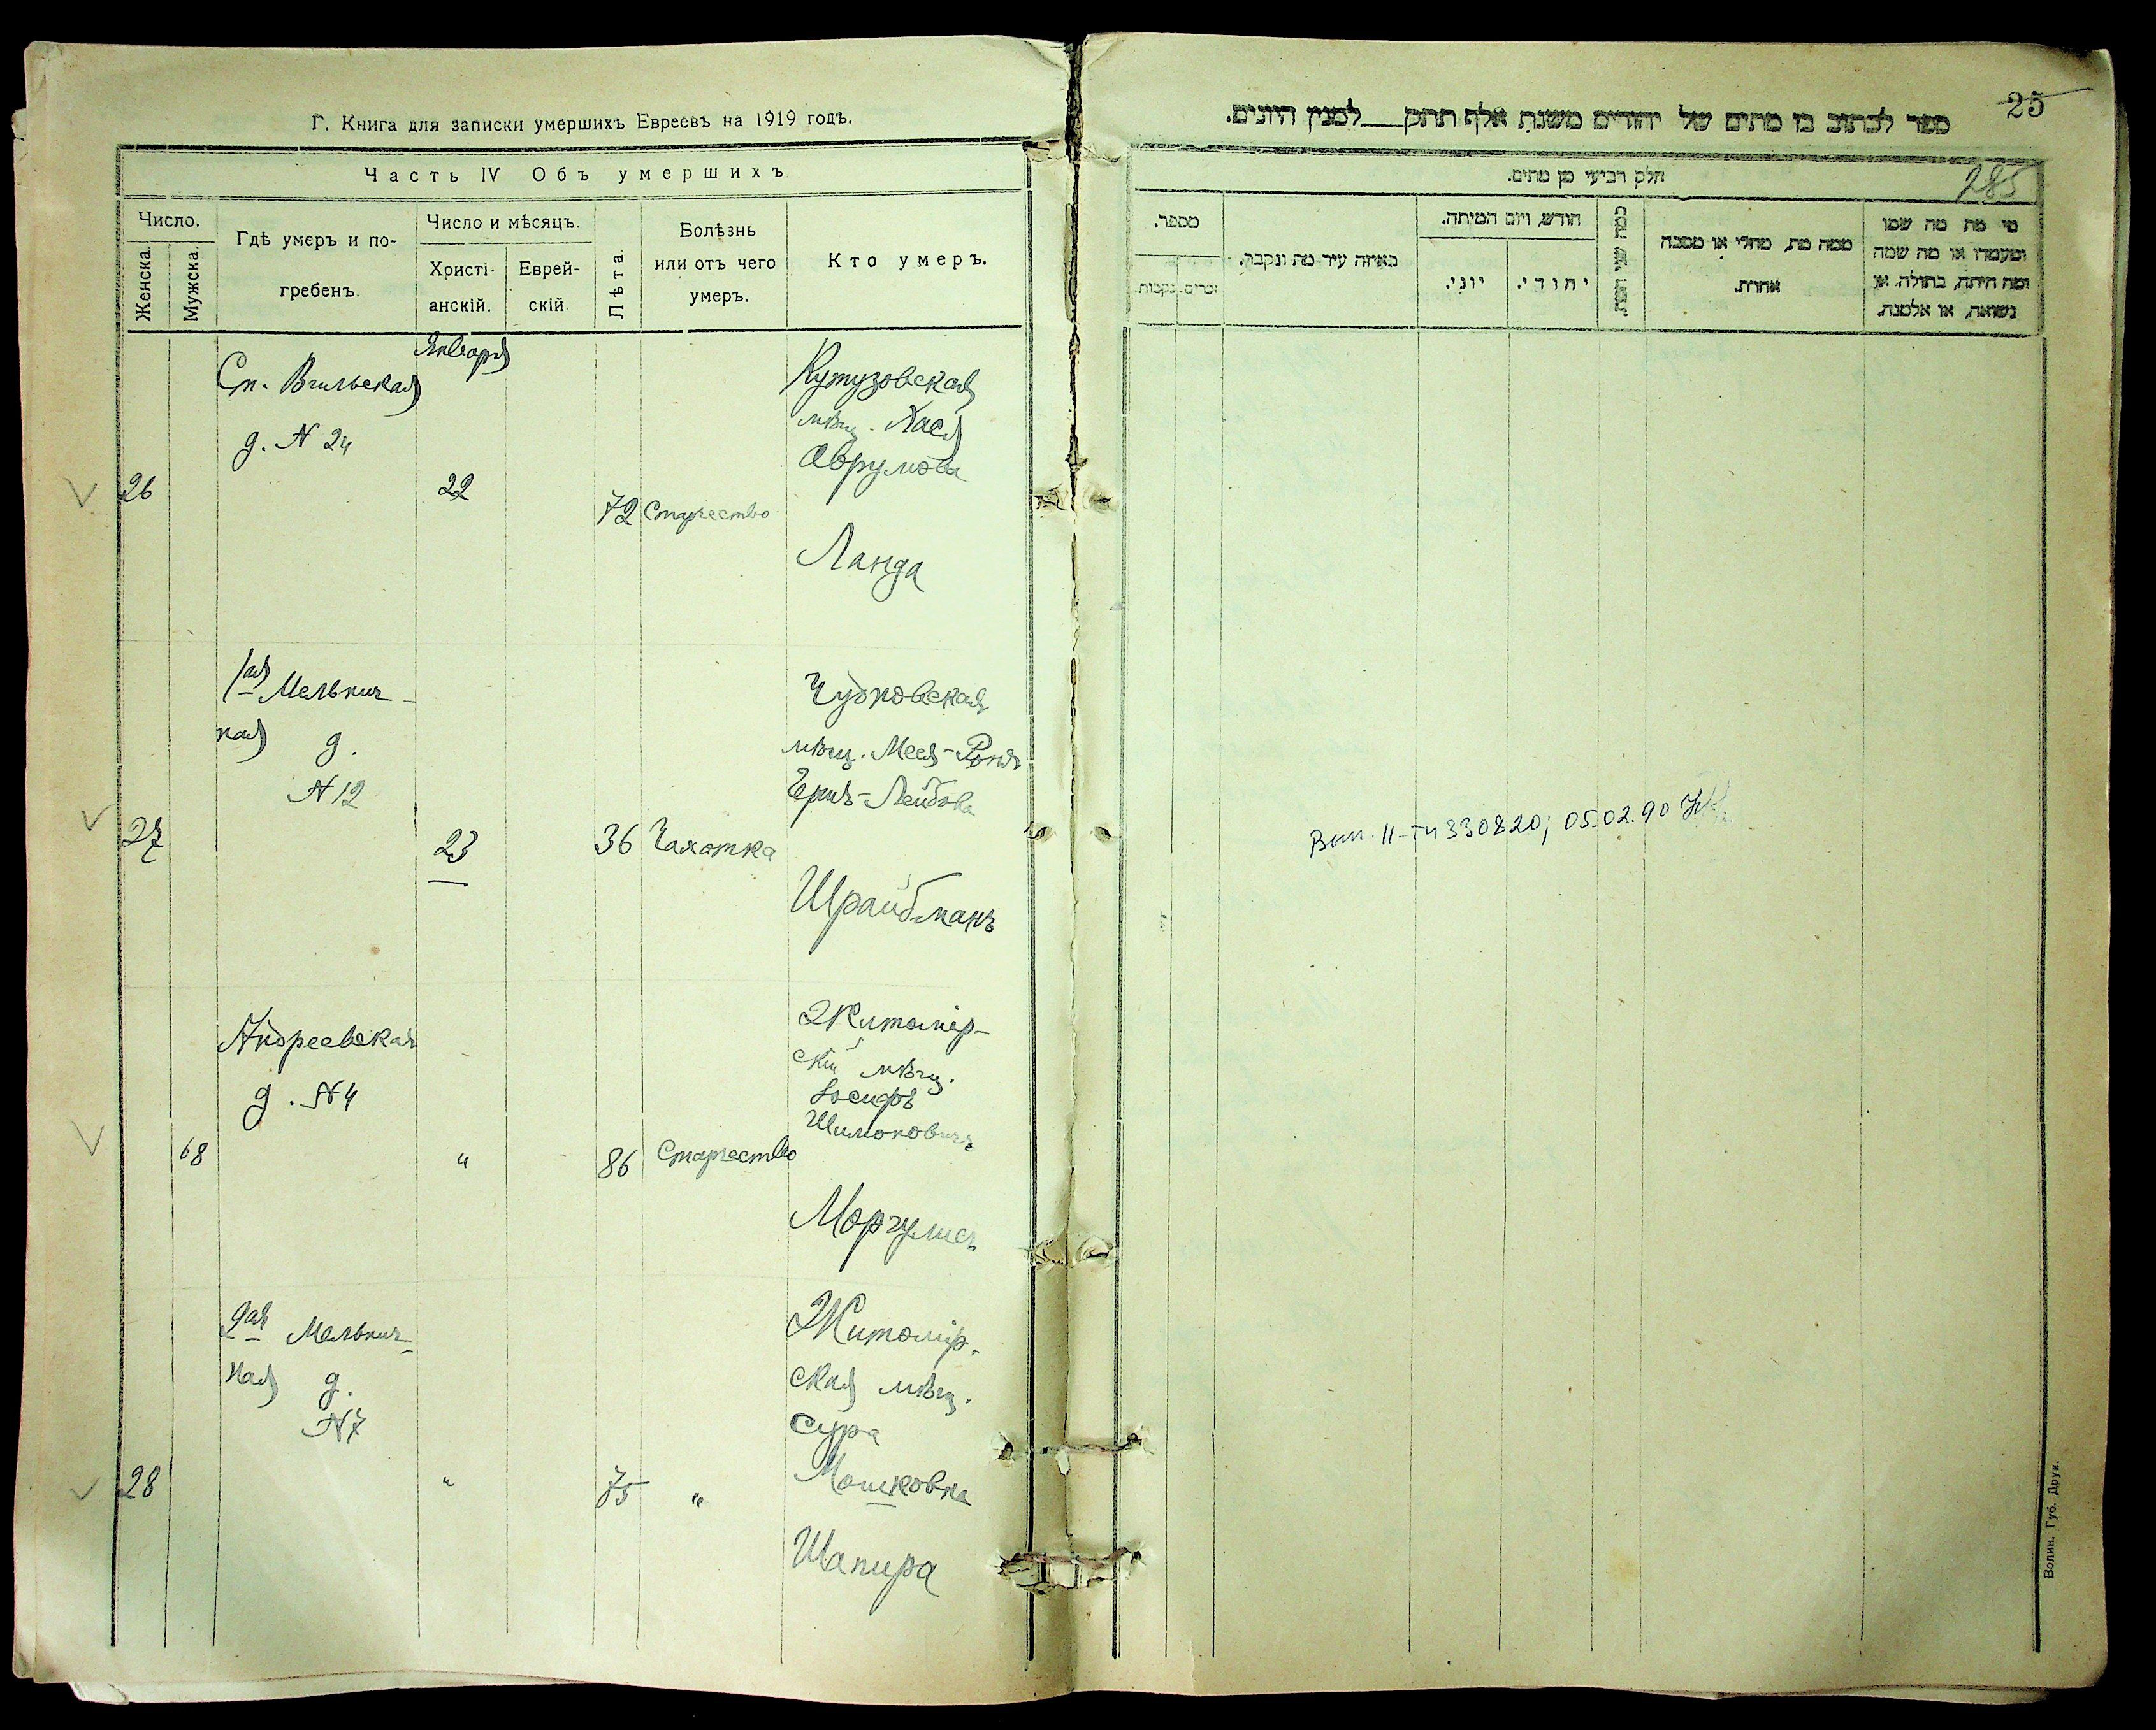 Г. Книга для записки умершихъ Евреевъ на 1919 годъ.
Часть IV Объ умершихъ
Число.
Женска.
Мужска.
Гдѣ умеръ и по-
гребенъ.
Число и мѣсяцъ.
Христі-
анскій.
Еврей-
скій.
Лѣта.
Болѣзнь
или отъ чего
умеръ.
Кто умеръ.
Января
Сп. Вильская
д. N 24
26
22
72
Старчество
Кутузовская
мѣщ. Хася
Аврумова
Ланда
1ая Мельнич-
ная д.
N 12
27
23
36
Чахотка
Чудновская
мѣщ.
Лейбова
Шрайбманъ
Андреевская
д. N 4
68
"
86
Старчество
Житомір-
скій мѣщ.
Іосифъ
Шимоновичъ
Моргулисъ
2ая Мельнич-
ная д.
N 7
28
"
75
"
Житомір-
ская мѣщ.
Сура
Мошковна
Шапира
25
ספר לכתוב בו מתים של יהודים משנת אלף תתק___למנין היונים.
285
חלק רביעי מן מתים.
מספר.
זכרים.
נקבות.
באיזה עיר מת ונקבר.
חודש, ויום המיתה.
יוני.
יהודי.
ממה מת, מחלי או מסבה
אחרת.
מי מת מה שמו
ומעמדו או מה שמה
ומה היתה, בתולה, או
נשואה, או אלמנה.
05.02.90
Волин. Губ. Друк.